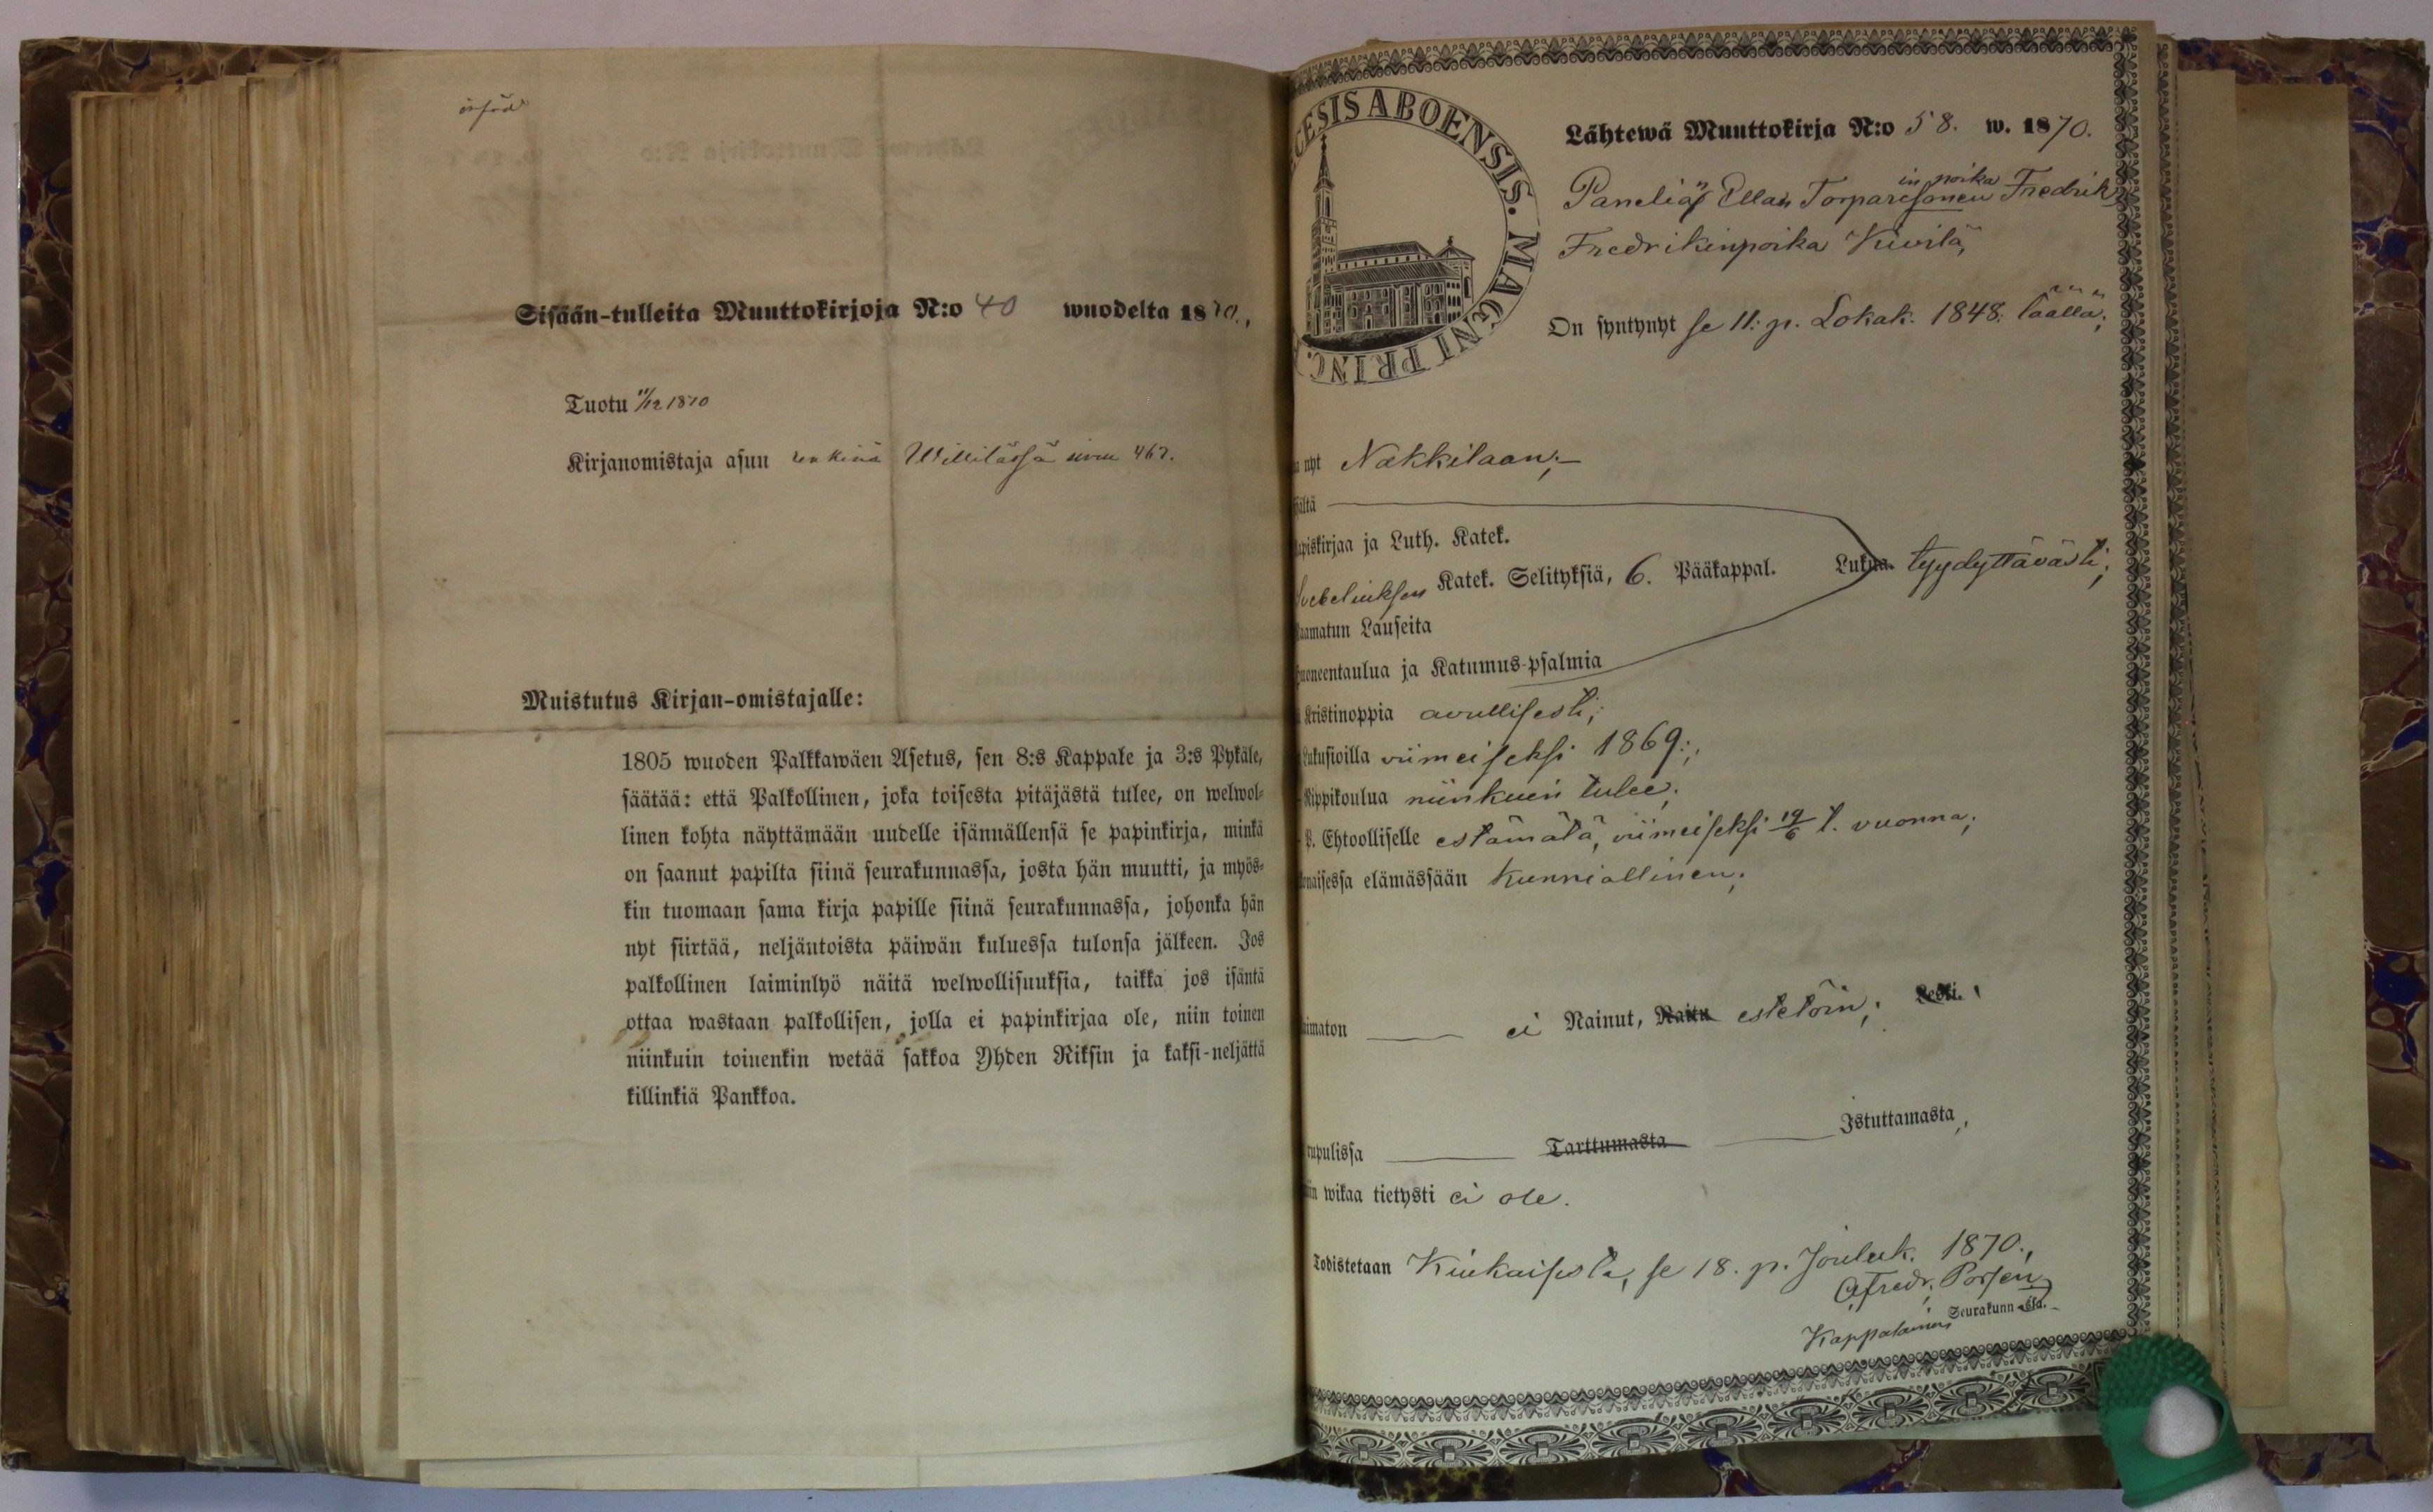 Sisään-tulleita Muuttokirjoja N:o 40 wuodelta 1870.,
Tuotu 11/12 1870
Kirjanomistaja asuu renkinä Willilässä sivu 467.
Muistutus Kirjan-omistajalle:
1805 wuoden Palkkawäen Asetus, sen 8:s Kappale ja 3:s Pykäle,
säätää: että Palkollinen, joka toisesta pitäjästä tulee, on welwol-
linen kohta näyttämään uudelle isännällensä se papinkirja, minkä
on saanut papilta siinä seurakunnassa, josta hän muutti, ja myös-
kin tuomaan sama kirja papille siinä seurakunnassa, johonka hän
nyt siirtää, neljäntoista päiwän kuluessa tulonsa jälkeen. Jos
palkollinen laiminlyö näitä welwollisuuksia, taikka jos isäntä
ottaa wastaan palkollisen, jolla ei papinkirjaa ole, niin toinen
niinkuin toinenkin wetää sakkoa Yhden Riksin ja kaksi-neljättä
killinkiä Pankkoa.
CESIS ABOENSIS. MAGNI PRINC.
Lähtewä Muuttokirja N:o 58. w. 1870.
Panelian Ellan Torparin poika Fredrik
Fredrikinpoika Kiwilä,
On syntynyt se 11. p. Lokak. 1848. täällä;
nyt Nakkilaan;
ältä
apiskirjaa ja Luth. Katek.
Svebeliuksen Katek. Selityksiä, 6. Pääkappal. Lukua tyydyttävästi;
aamatun Lauseita
uoneentaulua ja Katumus-psalmia
Kristinoppia avullisesti;
Lukusioilla viimeiseksi 1869;
Rippikoulua niinkuin tulee;
P. Ehtoolliselle estämätä, viimeiseksi 19/6 t. vuonna;
onaisessa elämässään kunniallinen;
aimaton ei Nainut, Naitu estetöin; Leski.
rupulissa Tarttumasta Istuttamasta,
in wikaa tietysti ei ole.
Todistetaan Kiukaisista, se 18. p. Jouluk. 1870.,
Fredr. Porsen
Kappalainen Seurakunnassa.